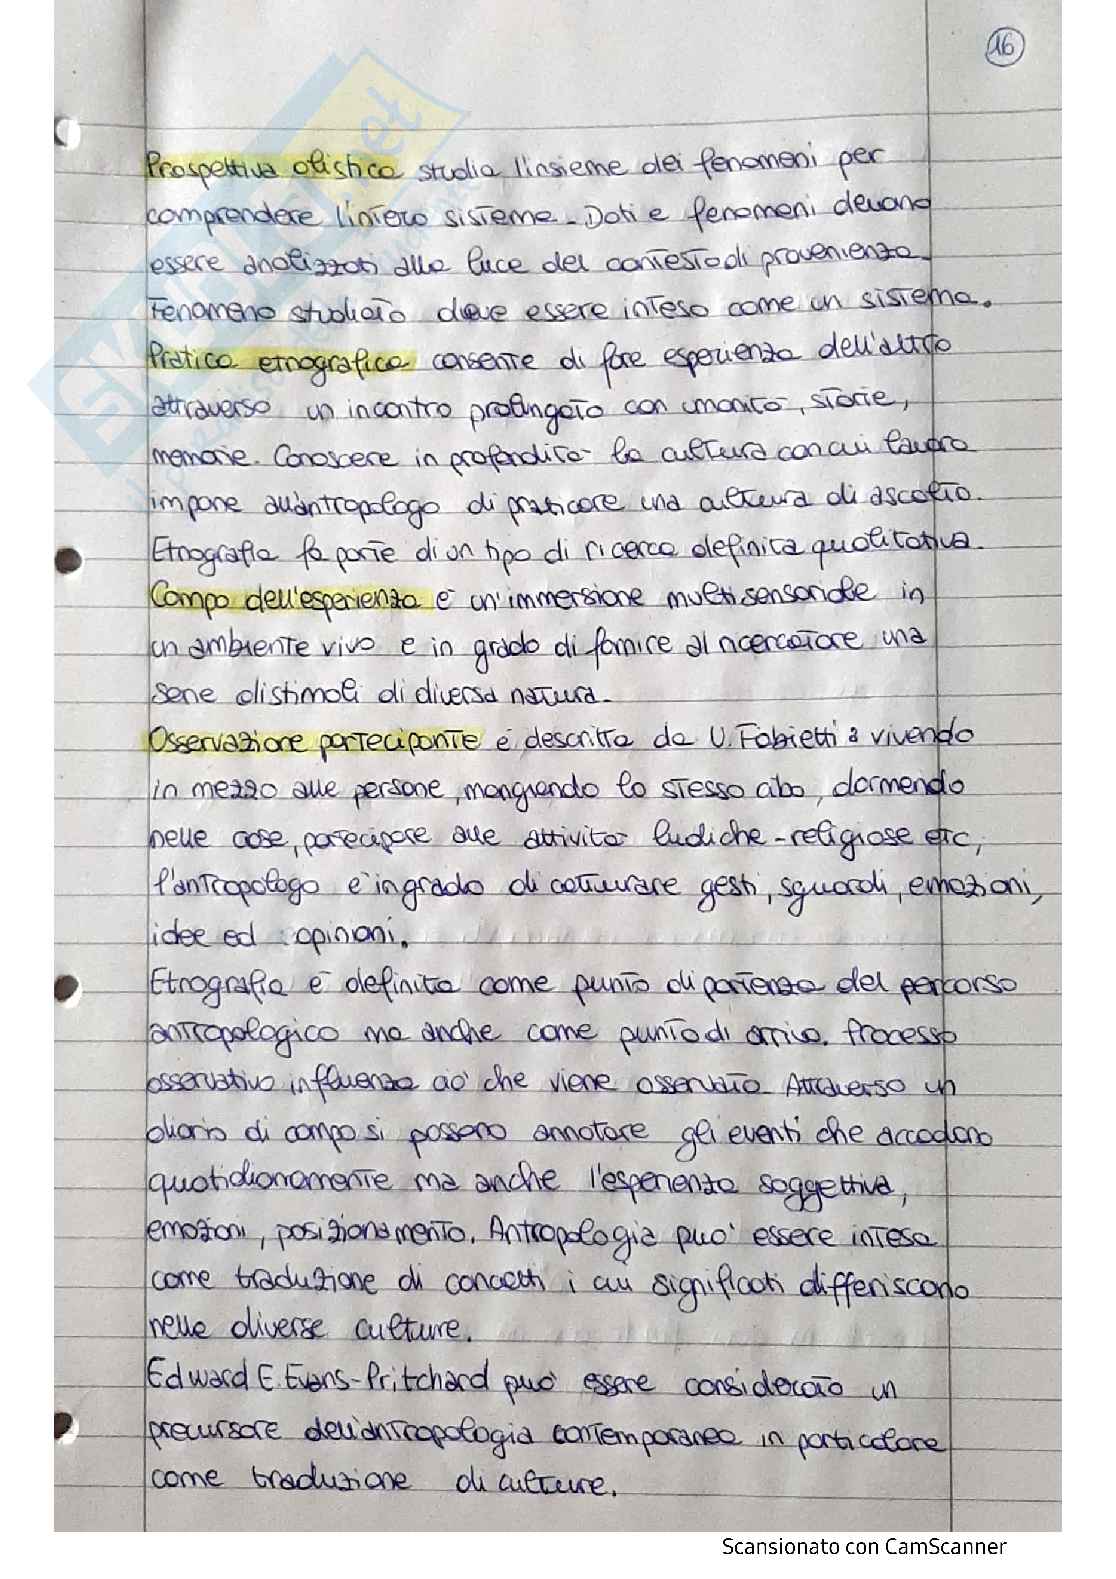 16
Prospettiva olistica studia l'insieme dei fenomeni per
comprendere l'intero sistema. Dati e fenomeni devono
essere analizzati alla luce del contesto di provenienza.
Fenomeno studiato deve essere inteso come un sistema.
Pratica etnografica consente di fare esperienza dell'altro
attraverso un incontro prolungato con umanità, storie,
memorie. Conoscere in profondità la cultura con cui lavora
impone all'antropologo di praticare una cultura di ascolto.
Etnografia fa parte di un tipo di ricerca definita qualitativa.
Campo dell'esperienza è un'immersione multisensoriale in
un ambiente vivo e in grado di fornire al ricercatore una
serie di stimoli di diversa natura.
Osservazione partecipante è descritta da U. Fabietti: vivendo
in mezzo alle persone, mangiando lo stesso cibo, dormendo
nelle case, partecipare alle attività ludiche-religiose etc,
l'antropologo è in grado di catturare gesti, sguardi, emozioni,
idee ed opinioni.
Etnografia è definita come punto di partenza del percorso
antropologico ma anche come punto di arrivo. Processo
osservativo influenza ciò che viene osservato. Attraverso un
diario di campo si possono annotare gli eventi che accadono
quotidianamente ma anche l'esperienza soggettiva,
emozioni, posizionamento. Antropologia può essere intesa
come traduzione di concetti i cui significati differiscono
nelle diverse culture.
Edward E. Evans-Pritchard può essere considerato un
precursore dell'antropologia contemporanea in particolare
come traduzione di culture.
Scansionato con CamScanner